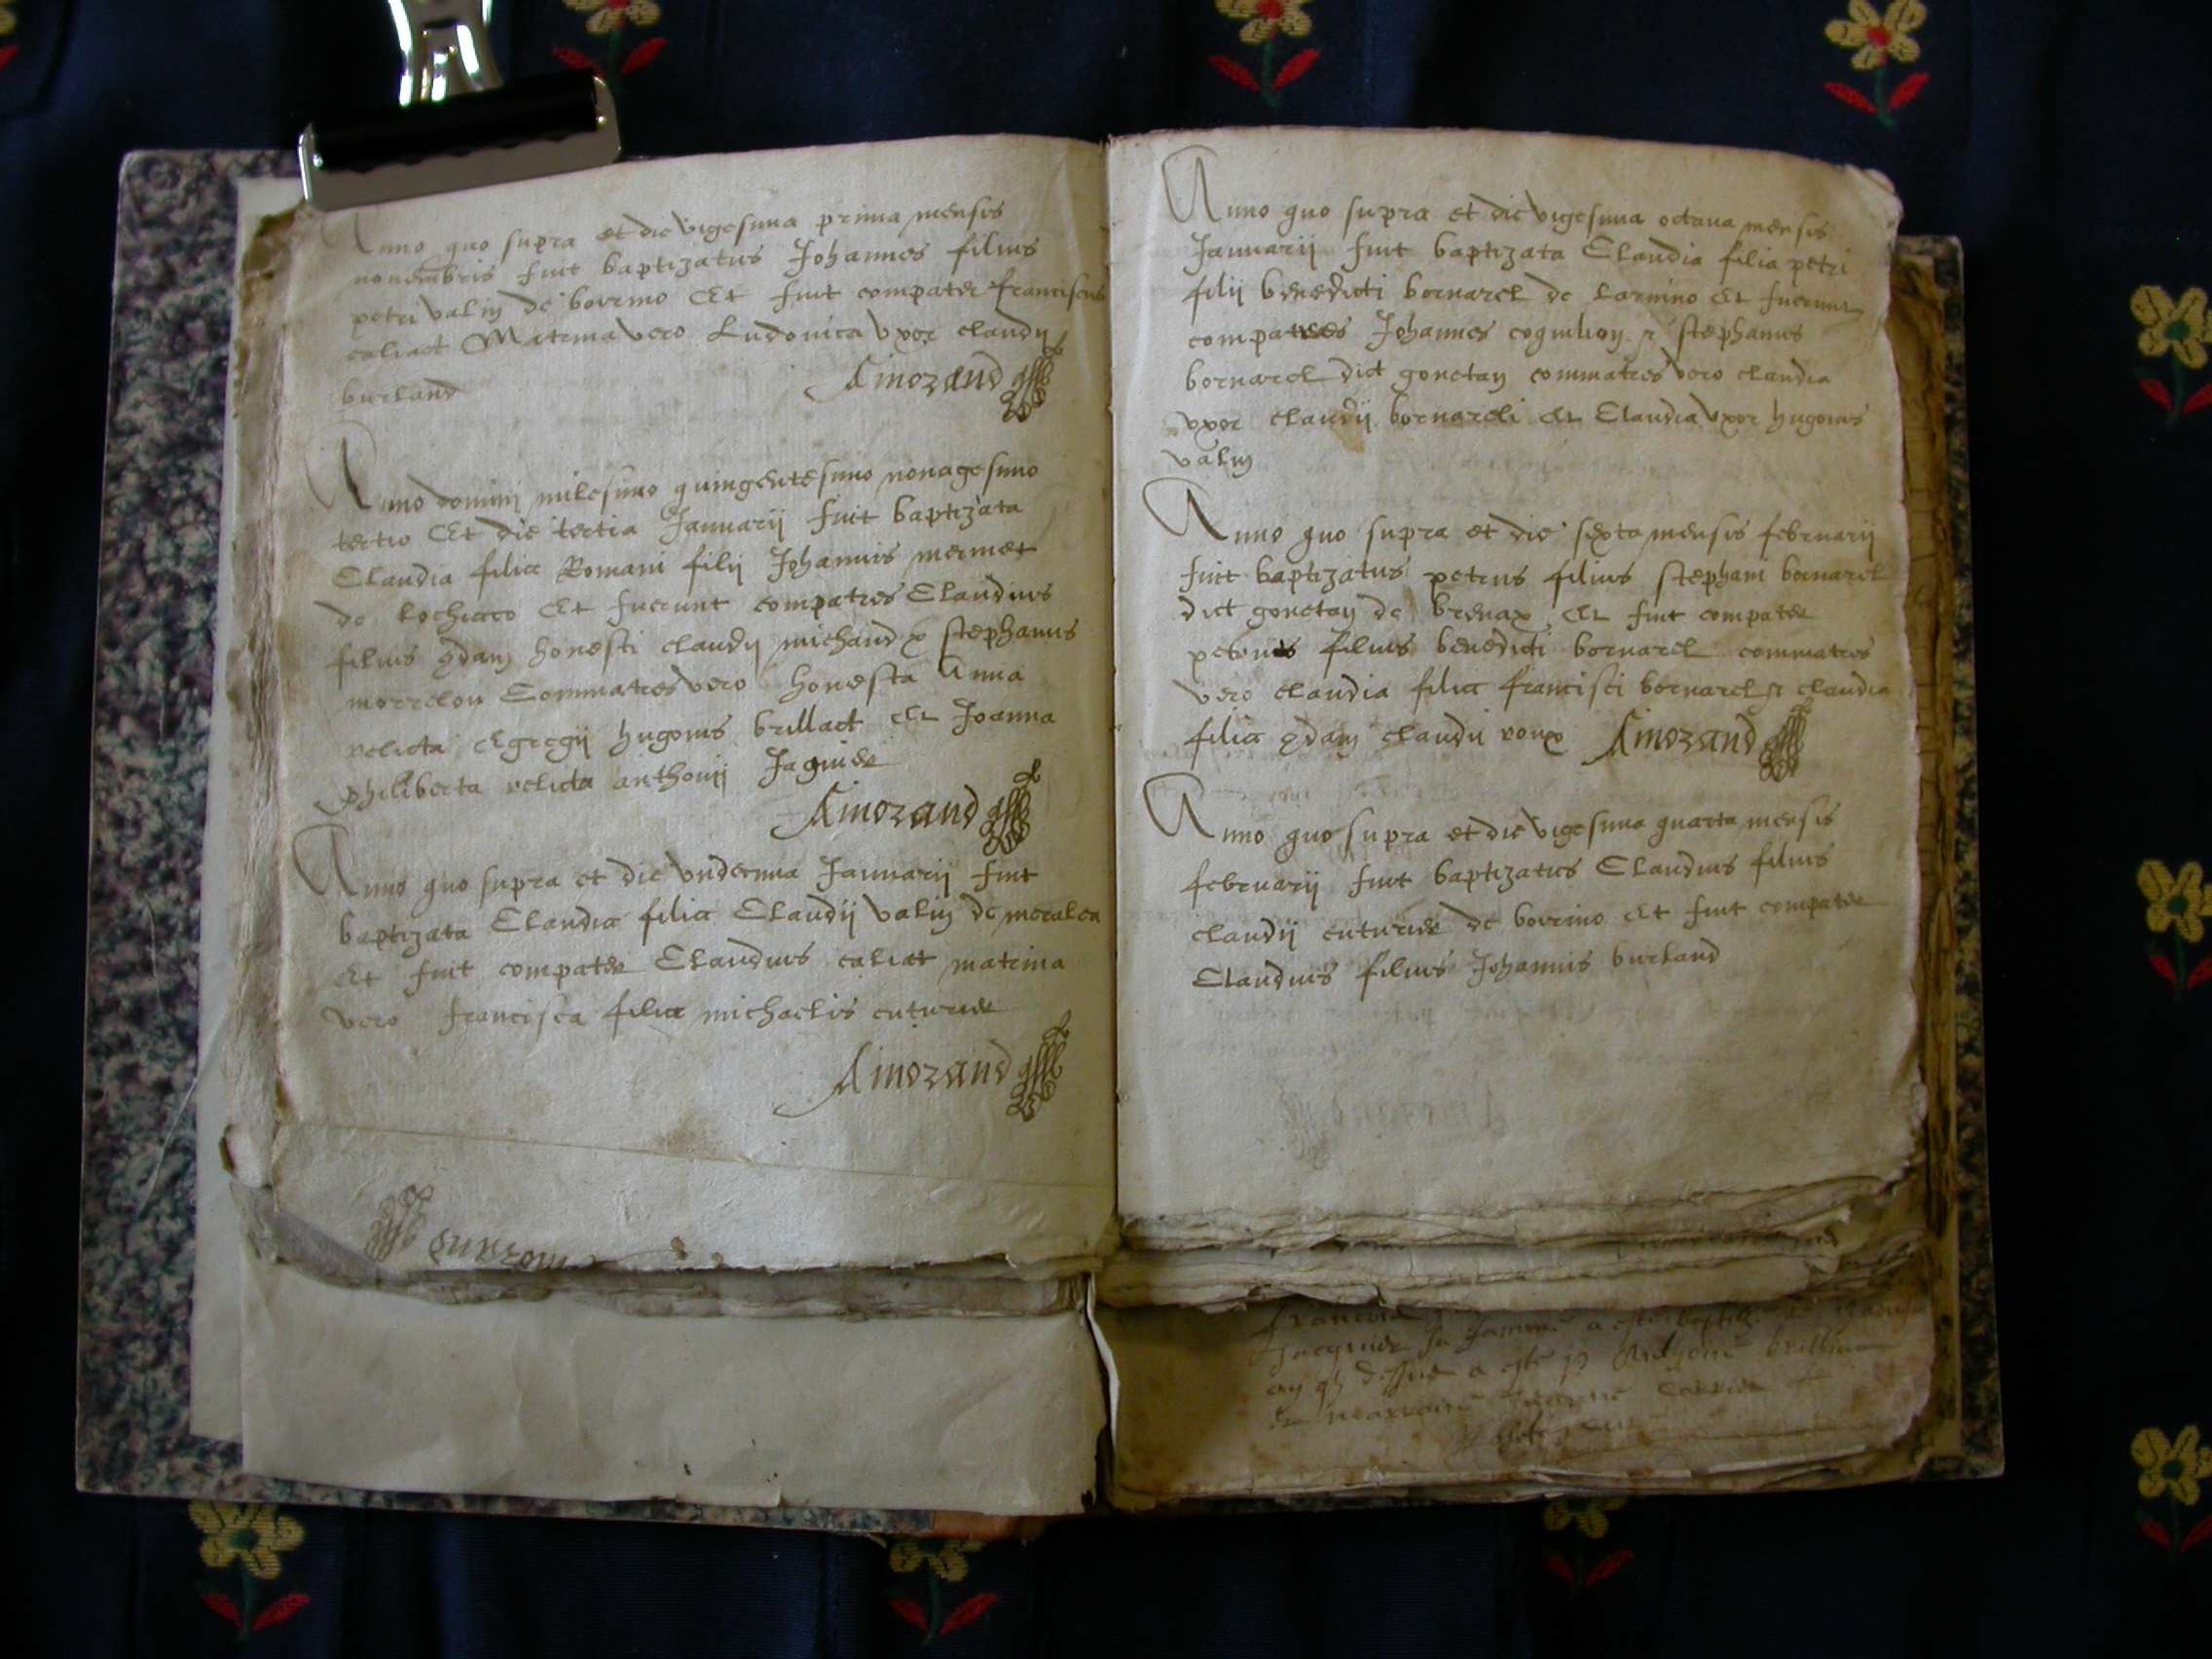 Anno quo supra et die vigesima prima mensis
novembris fuit baptizatus Johannes filius
petri valin de bovrino Et fuit compater franciscus
caliact Matrina vero Ludovica vxor claudij
burland
Amozand
Anno domini milesimo quingentesimo nonagesimo
tertio Et die tertia Januarij fuit baptizata
Claudia filia Romani filij Johannis mermet
de Et fuerunt compatres Claudius
filius qdam honesti claudij michaud & stephanus
morrelon Commatres vero honesta Anna
relicta Egregij hugonis brillact Et Joanna
philiberta relicta anthonij Jaguide
Amozand
Anno quo supra et die vndecima Januarij fuit
baptizata Claudia filia Claudij valin de
Et fuit compater Claudius caliat matrina
vero francisca filia michaelis
Amozand
Anno quo supra et die vigesima octava mensis
Januarij fuit baptizata Claudia filia petri
filij benedicti bornarel de Larnino Et fuerunt
compatres Johannes & stephanus
bornarel dict gonetan commatres vero claudia
vxor claudij bornareli Et Claudia vxor hugonis
valin
Anno quo supra et die sexta mensis februarij
fuit baptizatus petrus filius stephani bornarel
dict gonetan de brenax Et fuit compater
petrus filius benedicti bornarel commatres
vero claudia filia francisci bornarel & claudia
filia qdam claudii roux Amozand
Anno quo supra et die vigesima quarta mensis
februarij fuit baptizatus Claudius filius
claudij de bovrino Et fuit compater
Claudius filius Johannis burland